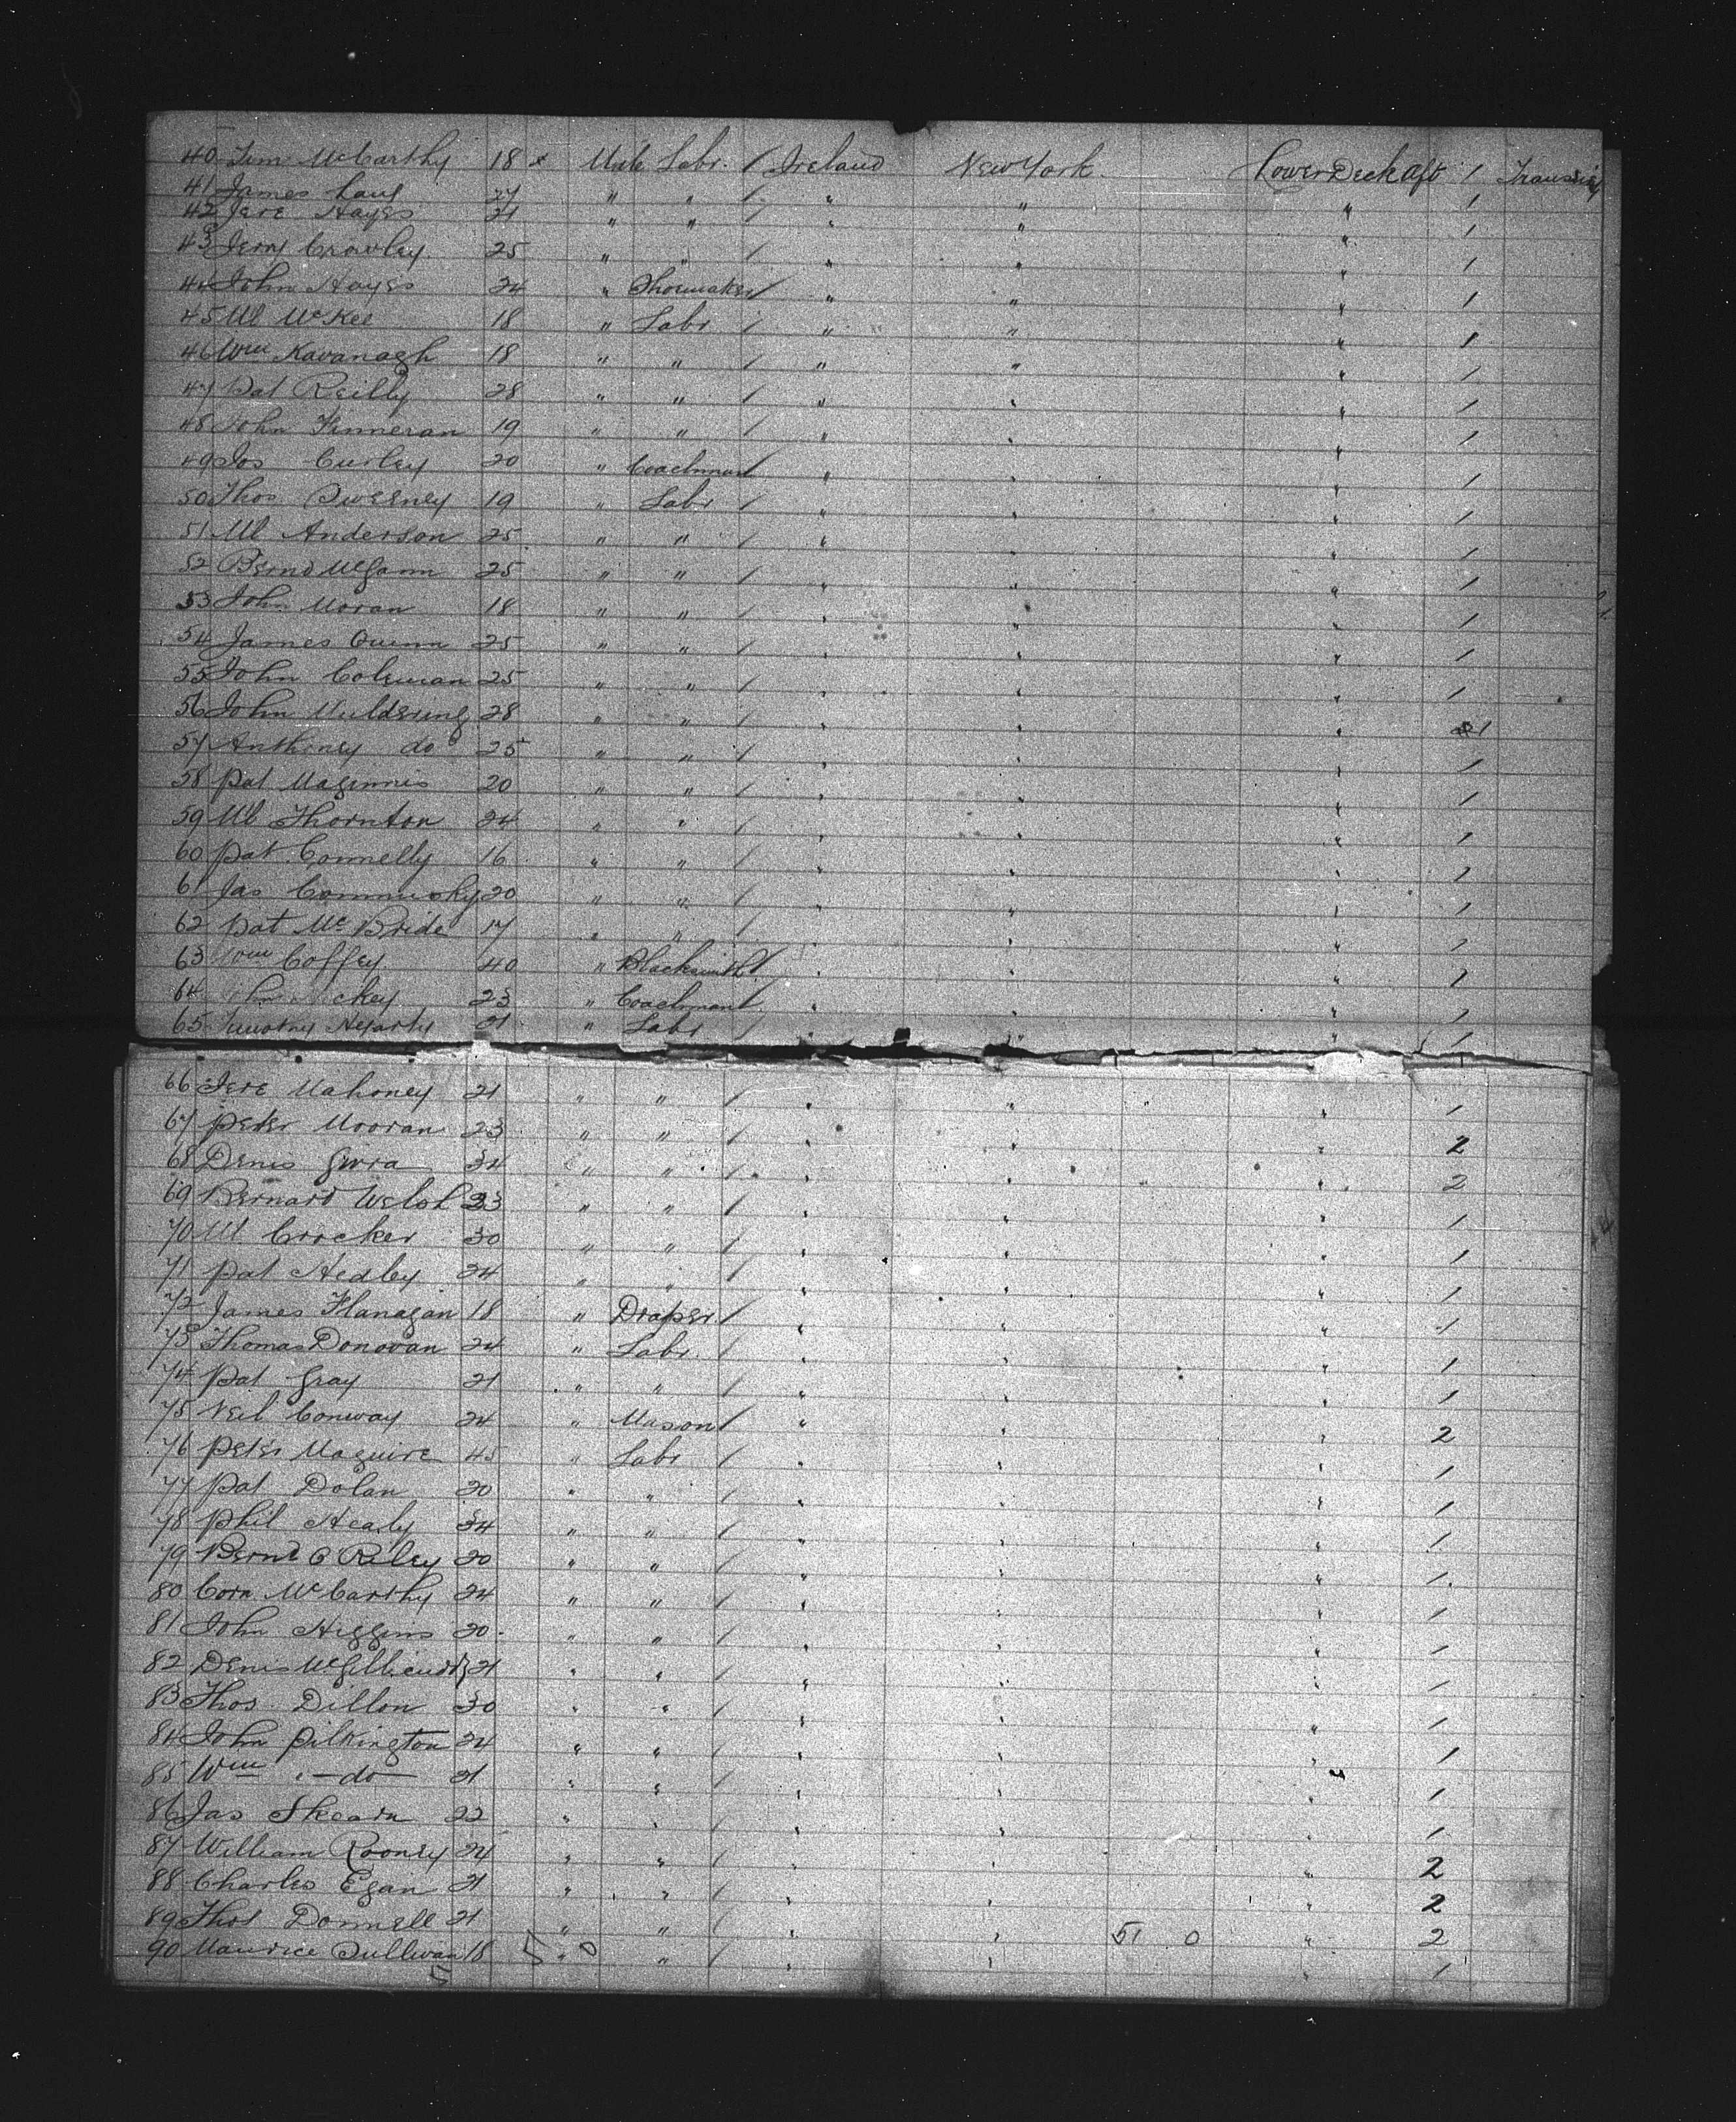 40 Tim McCarthy 18 x Male Labr. / Ireland New York Lower Deck Aft 1
41 James 27 " " / " " " 1
42 Jere Hayes 21 " " / " " " 1
43 Jerry Crowley 25 " " / " " " 1
44 John Hayes 24 " Shoemaker / " " " 1
45 Ml McKee 18 " Labr / " " " 1
46 Wm Kavanagh 18 " " / " " " 1
47 Pat Reilly 28 " " / " " " 1
48 John Finneran 19 " " / " " " 1
49 Jos Curley 20 " Coachman / " " " 1
50 Thos Sweeney 19 " Labr / " " " 1
51 Ml Anderson 25 " " / " " " 1
52 Bernd McGann 25 " " / " " " 1
53 John Moran 18 " " / " " " 1
54 James Quinn 25 " " / " " " 1
55 John Coleman 25 " " / " " " 1
56 John 28 " " / " " " 1
57 Anthony do 25 " " / " " " 1
58 Pat Maginnis 20 " " / " " " 1
59 Ml Thornton 24 " " / " " " 1
60 Pat Connelly 16 " " / " " " 1
61 Jas 20 " " / " " " 1
62 Pat McBride 17 " " / " " " 1
63 Wm Coffey 40 " Blacksmith / " " " 1
64 23 " Coachman / " " " 1
65 Timothy Hegarty 21 " Labr / " " " 1
66 Jere Mahoney 21 " " / " " " 1
67 Peter Mooran 23 " " / " " " 2
68 Denis 34 " " / " " " 2
69 Bernard Welsh 23 " " / " " " 1
70 Ml Crocker 30 " " / " " " 1
71 Pat Hedley 24 " " / " " " 1
72 James Flanagan 18 " Draper / " " " 1
73 Thomas Donovan 24 " Labr. / " " " 1
74 Pat Gray 21 " " / " " " 1
75 Neil Conway 24 " Mason / " " " 2
76 Peter Maguire 45 " Labr / " " " 1
77 Pat Dolan 20 " " / " " " 1
78 Phil Healy 34 " " / " " " 1
79 Bernd O Riley 20 " " / " " " 1
80 Corn. McCarthy 24 " " / " " " 1
81 John Higgins 20 " " / " " " 1
82 Denis McGillicuddy 21 " " / " " " 1
83 Thos. Dillon 30 " " / " " " 1
84 John Pilkington 24 " " / " " " 1
85 Wm do 21 " " / " " " 1
86 Jas Skearn 22 " " / " " " 1
87 William Rooney 24 " " / " " " 2
88 Charles Egan 21 " " / " " " 2
89 Thos Donnell 21 " " / " " 51 0 " 2
90 Maurice Sullivan 18 5 " 0 " / " " " 1
5